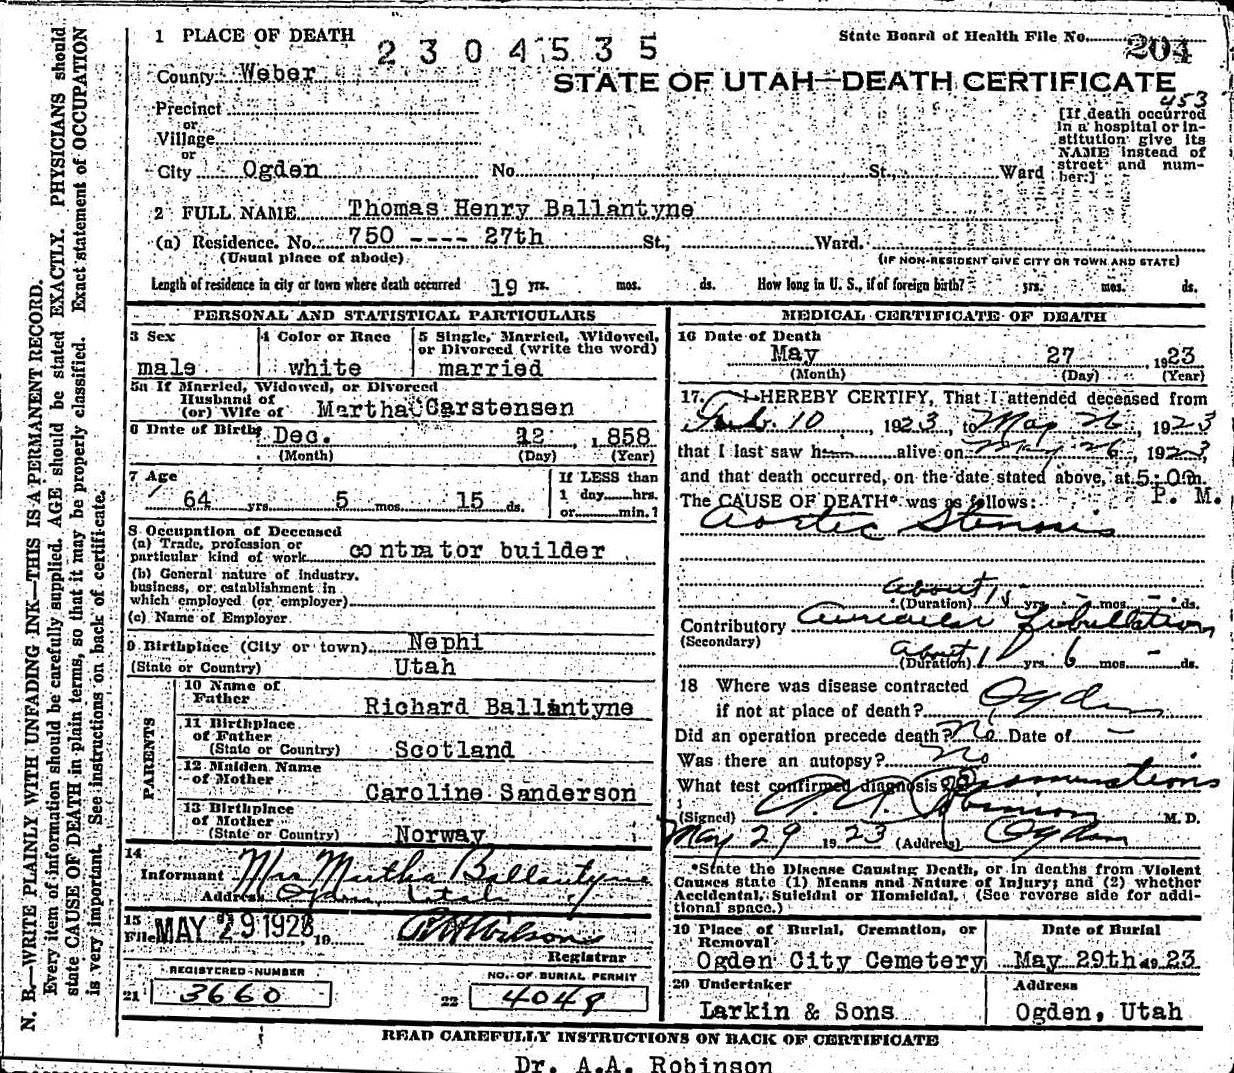 1 PLACE OF DEATH
2304535
State Board of Health File No. 204
County Weber
STATE OF UTAH—DEATH CERTIFICATE
453
Precinct
or
Village
or
City Ogden No. St., Ward
[If death occurred in a hospital or in-
stitution give its
NAME instead of
street and num-
ber.]
2 FULL NAME Thomas Henry Ballantyne
(a) Residence. No. 750 ---- 27th St., Ward.
(Usual place of abode) (IF NON-RESIDENT GIVE CITY OR TOWN AND STATE)
Length of residence in city or town where death occurred 19 yrs. mos. ds. How long in U. S., if of foreign birth? yrs. mos. ds.
PERSONAL AND STATISTICAL PARTICULARS
3 Sex 4 Color or Race 5 Single, Married, Widowed,
or Divorced (write the word)
male white married
5a If Married, Widowed, or Divorced
Husband of
(or) Wife of Martha Carstensen
6 Date of Birth Dec. 12, 1858
(Month) (Day) (Year)
7 Age If LESS than
64 yrs. 5 mos. 15 ds. 1 day hrs.
or min.?
8 Occupation of Deceased
(a) Trade, profession or
particular kind of work contrator builder
(b) General nature of industry,
business, or establishment in
which employed (or employer)
(c) Name of Employer
9 Birthplace (City or town) Nephi
(State or Country) Utah
PARENTS
10 Name of
Father Richard Ballantyne
11 Birthplace
of Father
(State or Country) Scotland
12 Maiden Name
of Mother Caroline Sanderson
13 Birthplace
of Mother
(State or Country) Norway
14
Informant Mrs Martha Ballantyne
Address Ogden, Utah
15
Filed MAY 29 1923, 19
R H Wilson
Registrar
REGISTERED NUMBER NO. OF BURIAL PERMIT
21 3660 22 4049
MEDICAL CERTIFICATE OF DEATH
16 Date of Death
May 27, 1923
(Month) (Day) (Year)
17. I HEREBY CERTIFY, That I attended deceased from
Feb. 10, 1923, to May 26, 1923
that I last saw him alive on May 26, 1923,
and that death occurred, on the date stated above, at 5:00m.
P. M.
The CAUSE OF DEATH* was as follows:
Aortic Stenosis
About
(Duration) yrs. - mos. - ds.
Contributory Auricular Fibrillation
(Secondary)
About
(Duration) 1 yrs. 6 mos. - ds.
18 Where was disease contracted
if not at place of death? Ogden
Did an operation precede death? No Date of —
Was there an autopsy? No
What test confirmed diagnosis?
(Signed) A. A. Robinson M. D.
May 29 1923 (Address) Ogden
*State the Disease Causing Death, or in deaths from Violent
Causes state (1) Means and Nature of Injury; and (2) whether
Accidental, Suicidal or Homicidal. (See reverse side for addi-
tional space.)
19 Place of Burial, Cremation, or
Removal Date of Burial
Ogden City Cemetery May 29th 1923
20 Undertaker Address
Larkin & Sons Ogden, Utah
READ CAREFULLY INSTRUCTIONS ON BACK OF CERTIFICATE
Dr. A.A. Robinson
N. B.—WRITE PLAINLY WITH UNFADING INK—THIS IS A PERMANENT RECORD.
Every item of information should be carefully supplied. AGE should be stated EXACTLY. PHYSICIANS should
state CAUSE OF DEATH in plain terms, so that it may be properly classified. Exact statement of OCCUPATION
is very important. See instructions on back of certificate.